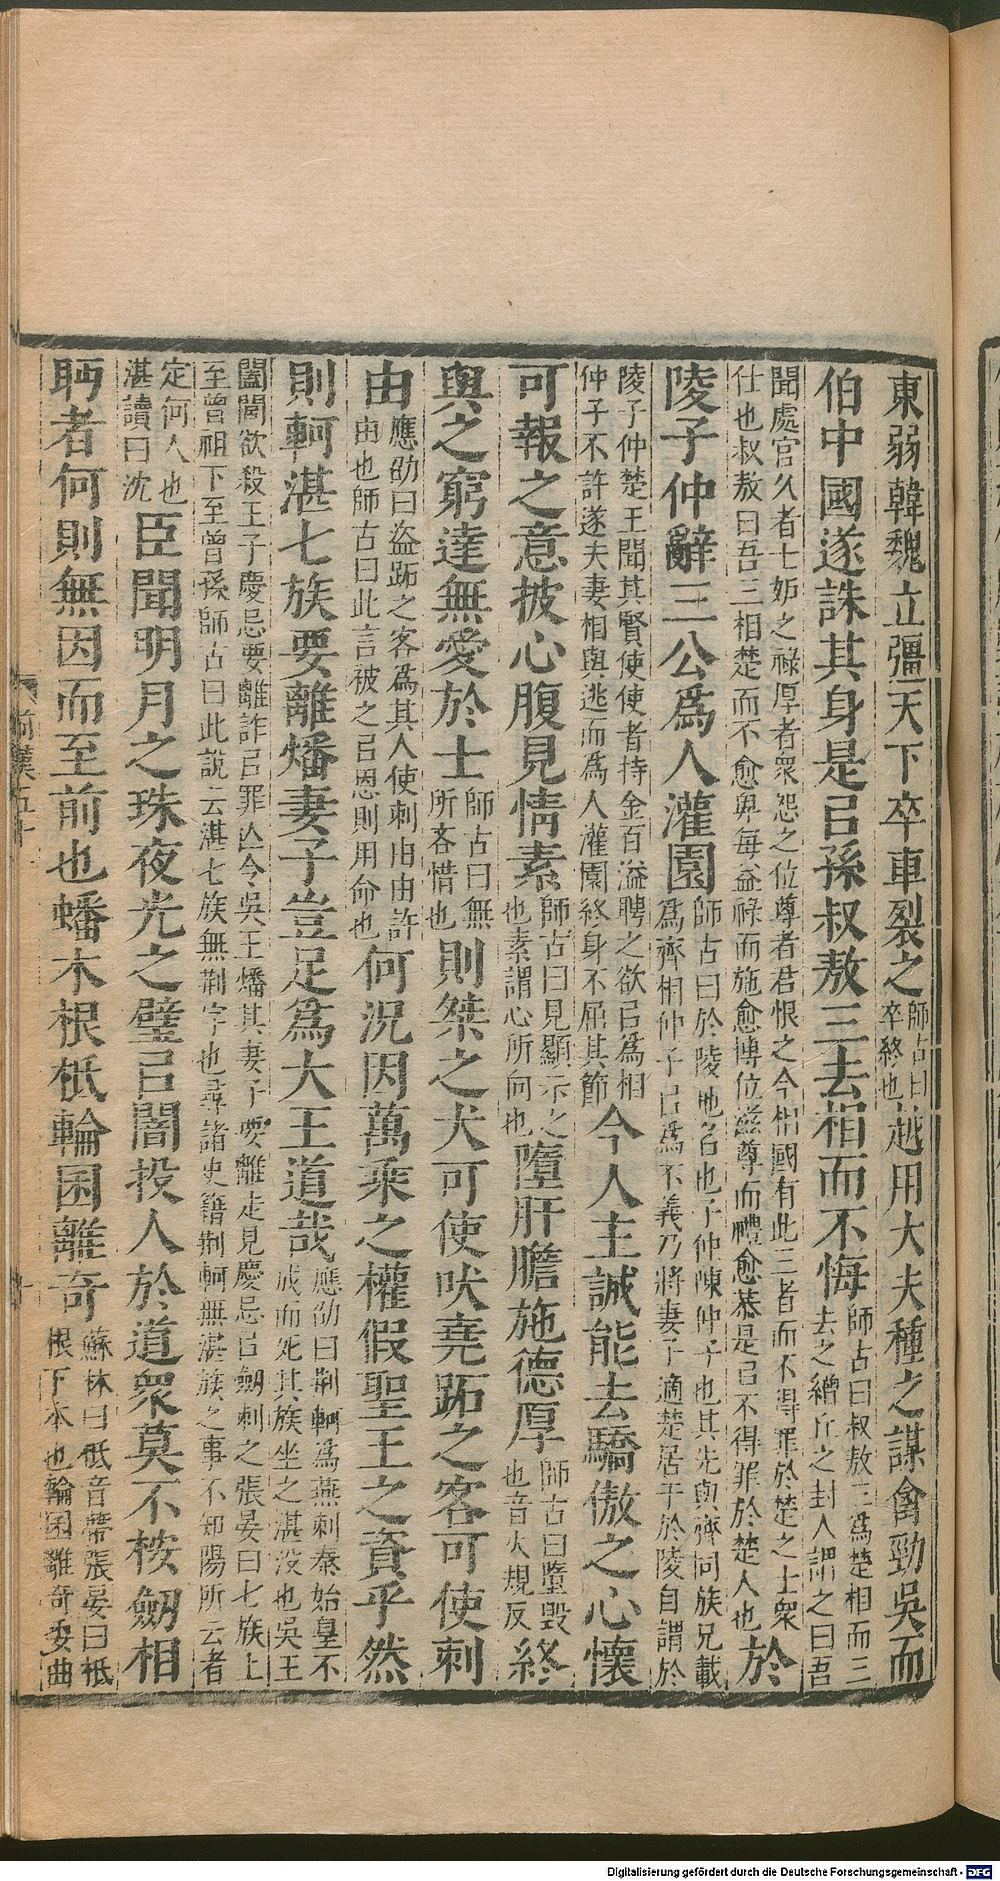 東弱韓魏立彊天下卒車裂之師古曰卒終也越用大夫種之謀禽勁吳而
伯中國遂誅其身是㠯孫叔敖三去相而不悔師古曰叔敖三爲楚相而三去之繒丘之封人謂之曰吾
聞處官久者士妬之祿厚者衆怨之位尊者君恨之今相國有此三者而不得罪於楚之士衆
仕也叔敖曰吾三相楚而不愈卑每益祿而施愈博位滋尊而禮愈恭是㠯不得罪於楚人也於
陵子仲辭三公爲人灌園師古曰於陵地名也子仲陳仲子也其先與齊同族兄載爲齊相仲子㠯爲不義乃將妻子適楚居于於陵自謂於
陵子仲楚王聞其賢使使者持金百溢聘之欲㠯爲相
仲子不許遂夫妻相與逃而爲人灌園終身不屈其節今人主誠能去驕傲之心懷
可報之意披心腹見情素師古曰見顯示之也素謂心所向也墮肝膽施德厚師古曰墮毀也音火規反終
與之窮達無愛於士師古曰無所吝惜也則桀之犬可使吠堯跖之客可使刺
由應劭曰盜跖之客爲其人使刺由由許由也師古曰此言被之㠯恩則用命也何況因萬乘之權假聖王之資乎然
則軻湛七族要離燔妻子豈足爲大王道哉應劭曰荆軻爲燕刺秦始皇不成而死其族坐之湛没也吳王
闔閭欲殺王子慶忌要離詐㠯罪亾令吳王燔其妻子要離走見慶忌㠯劒刺之張晏曰七族上
至曾祖下至曾孫師古曰此說云湛七族無荆字也尋諸史籍荆軻無湛族之事不知陽所云者
定何人也湛讀曰沈臣聞明月之珠夜光之璧㠯闇投人於道衆莫不按劒相
眄者何則無因而至前也蟠木根柢輪囷離奇蘇林曰柢音蔕張晏曰柢根下本也輪囷離奇委曲
前漢五十一
Digitalisierung gefördert durch die Deutsche Forschungsgemeinschaft - DFG